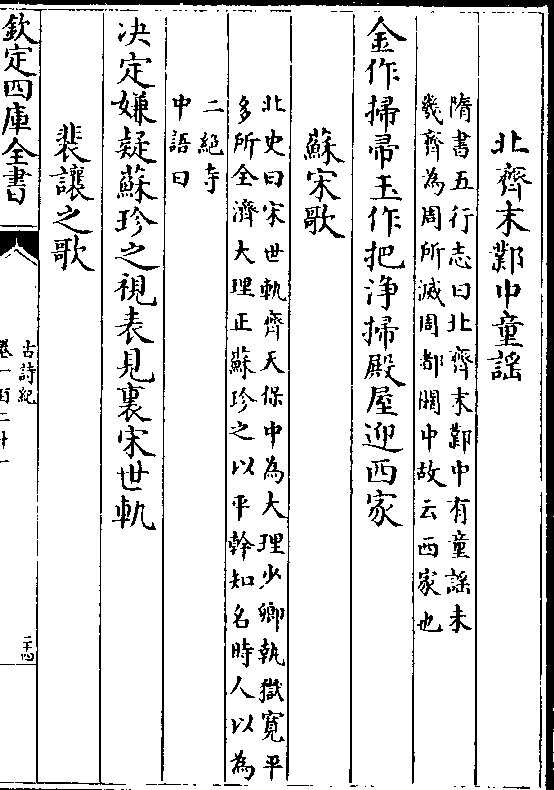 北齊末鄴中童謡
隋書五行志曰北齊末鄴中有童謡未
幾齊為周所滅周都關中故云西家也
金作掃帚玉作把浄掃殿屋迎西家
蘇宋歌
北史曰宋世軌齊天保中為大理少卿執獄寛平
多所全濟大理正蘇珍之以平幹知名時人以為
二絶寺
中語曰
决定嫌疑蘇珍之視表見裏宋世軌
裴讓之歌
欽定四庫全書
古詩紀
卷一百二十一
二十四